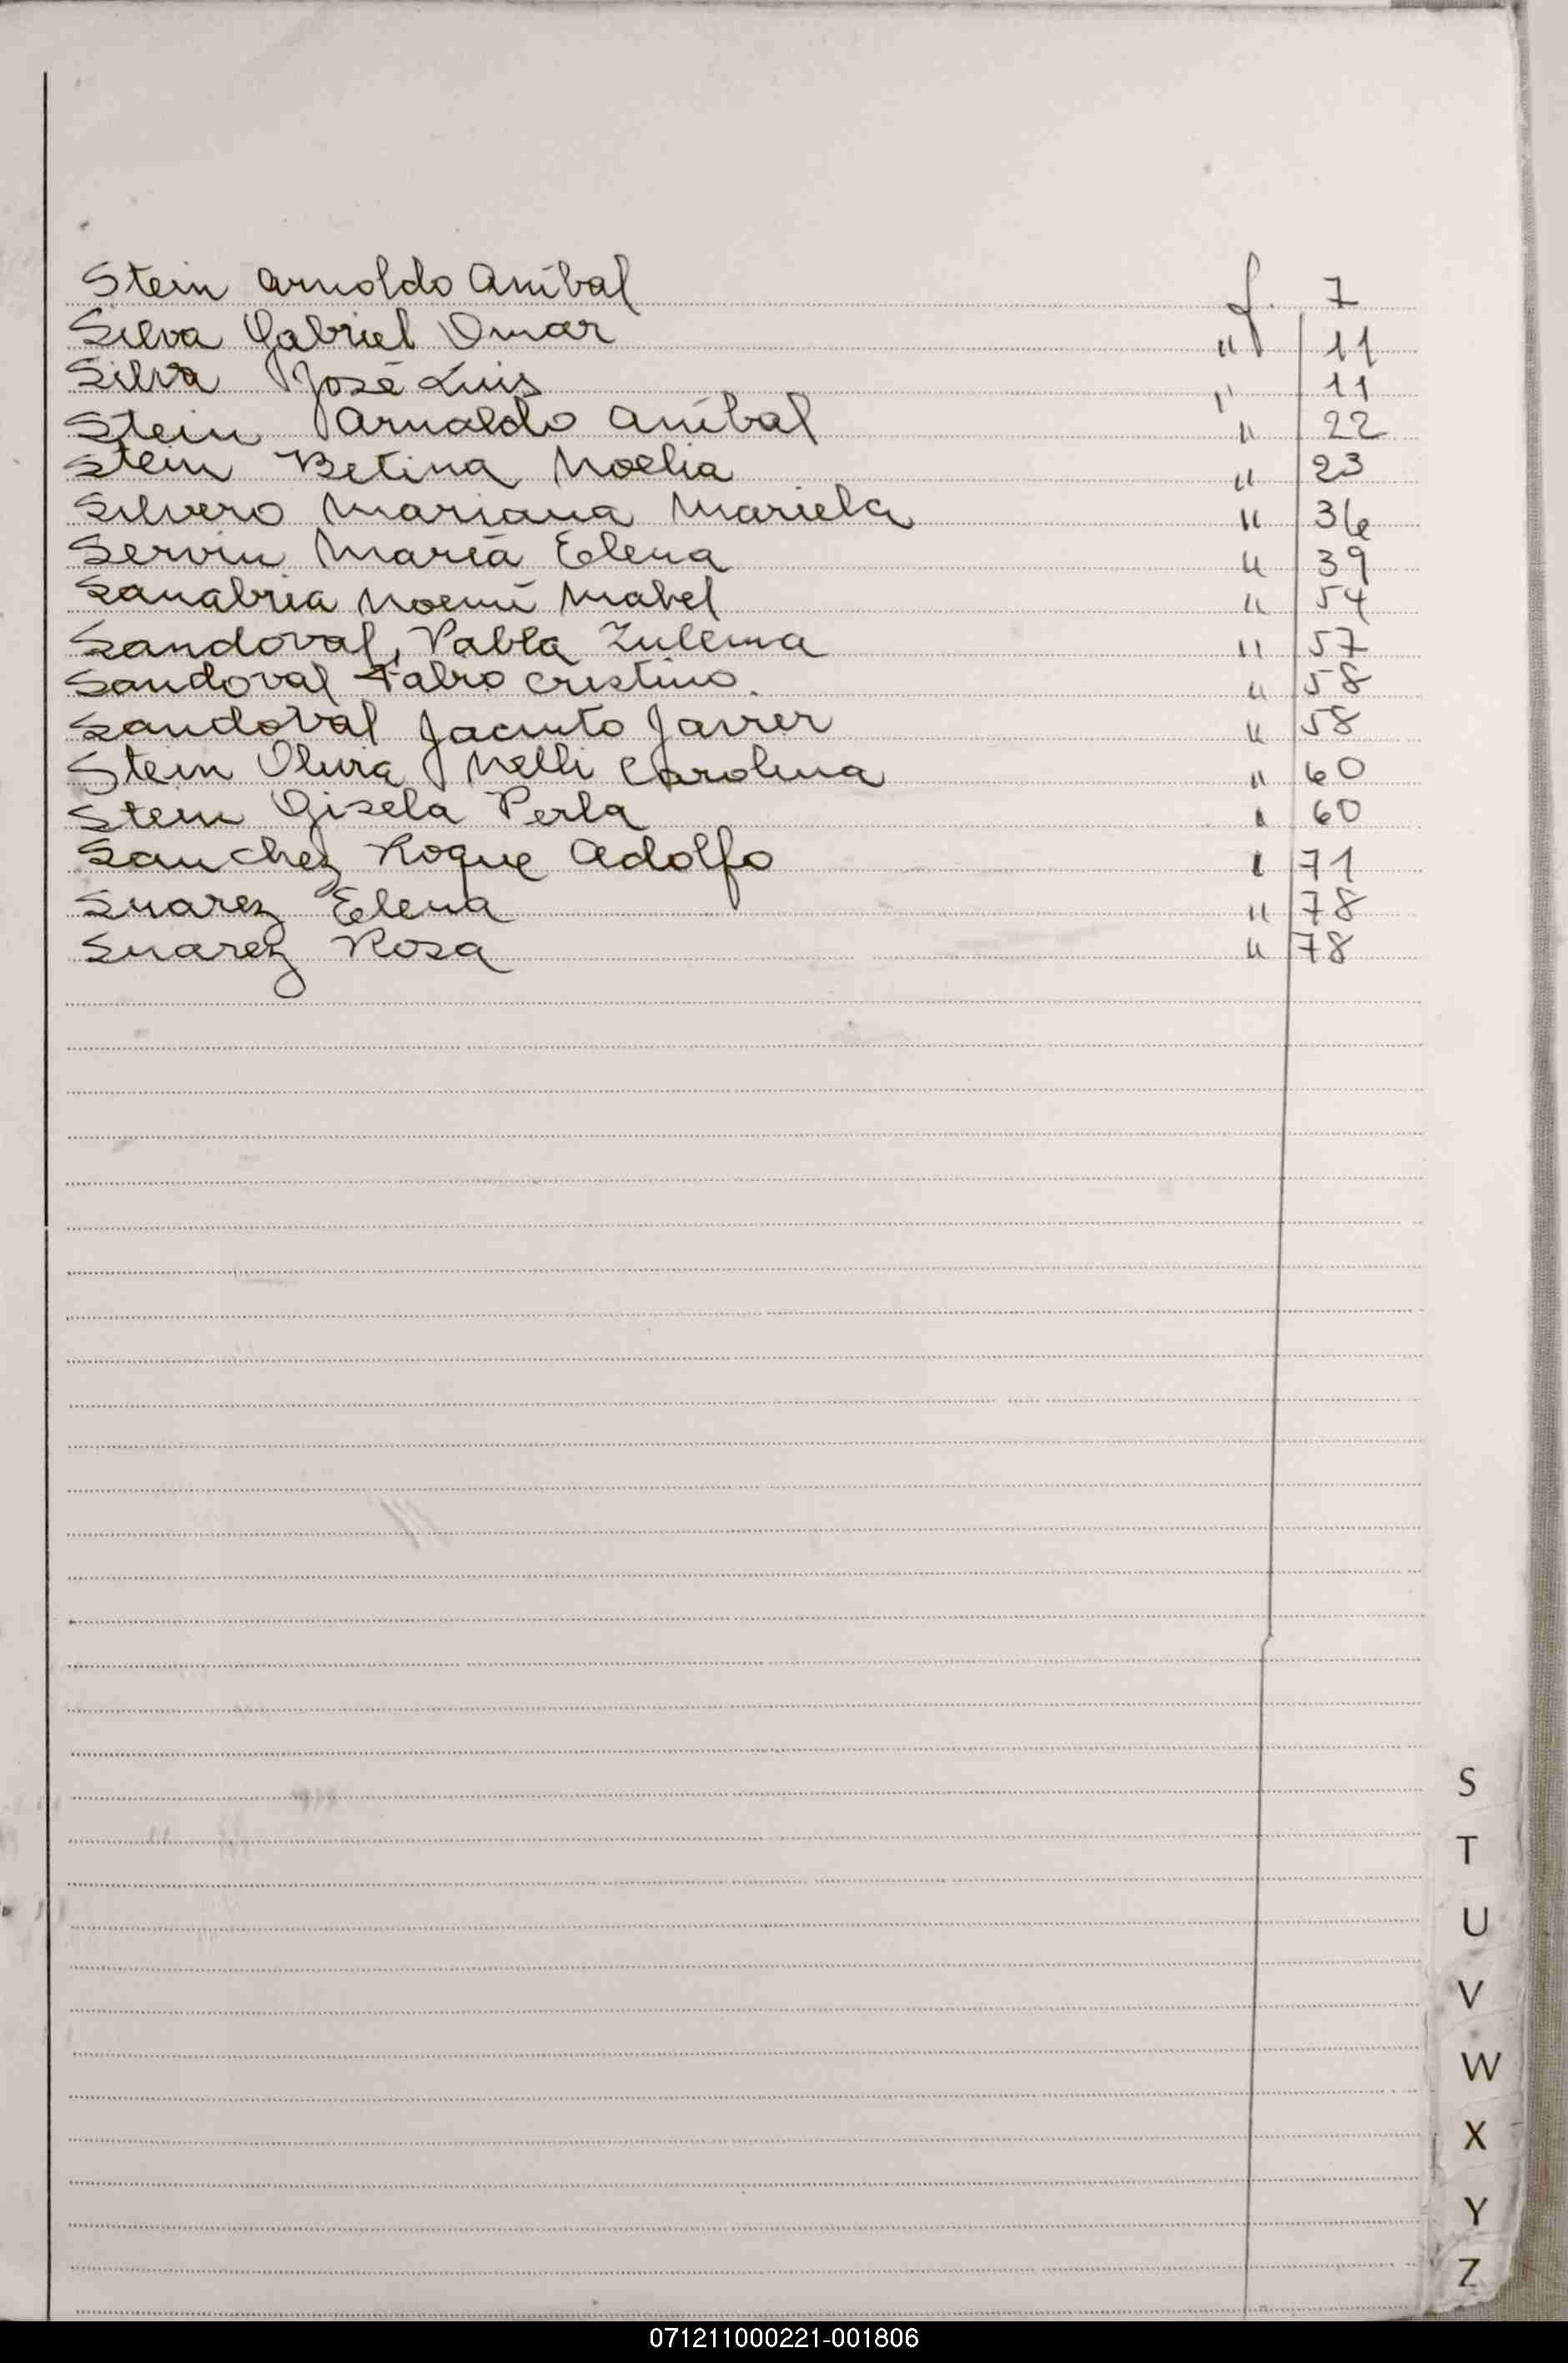 Stein Arnoldo Aníbal f. 7
Silva Gabriel Omar " 11
Silva José Luis " 11
Stein Arnaldo Aníbal " 22
Stein Betina Noelia " 23
Silvero Mariana Mariela " 36
Servin María Elena " 39
Sanabria Noemí Mabel " 54
Sandoval, Pabla Zulema " 57
Sandoval Fabio Cristino. " 58
Sandoval Jacinto Javier " 58
Stein Olivia Nelli Carolina " 60
Stein Gisela Perla " 60
Sanchez Roque Adolfo " 71
Suarez Elena " 78
Suarez Rosa " 78
S
T
U
V
W
X
Y
Z
071211000221-001806